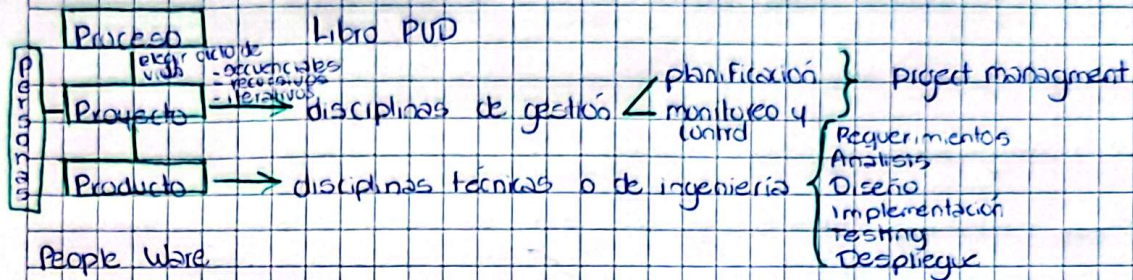 Proceso
Libro PUD
elegir ciclo de
vida
- secuenciales
- recursivos
- iterativos
Personas
Proyecto
disciplinas de gestión
planificación
monitoreo y
control
project managment
Producto
disciplinas técnicas o de ingeniería
Requerimientos
Análisis
Diseño
Implementación
Testing
Despliegue
People Ware